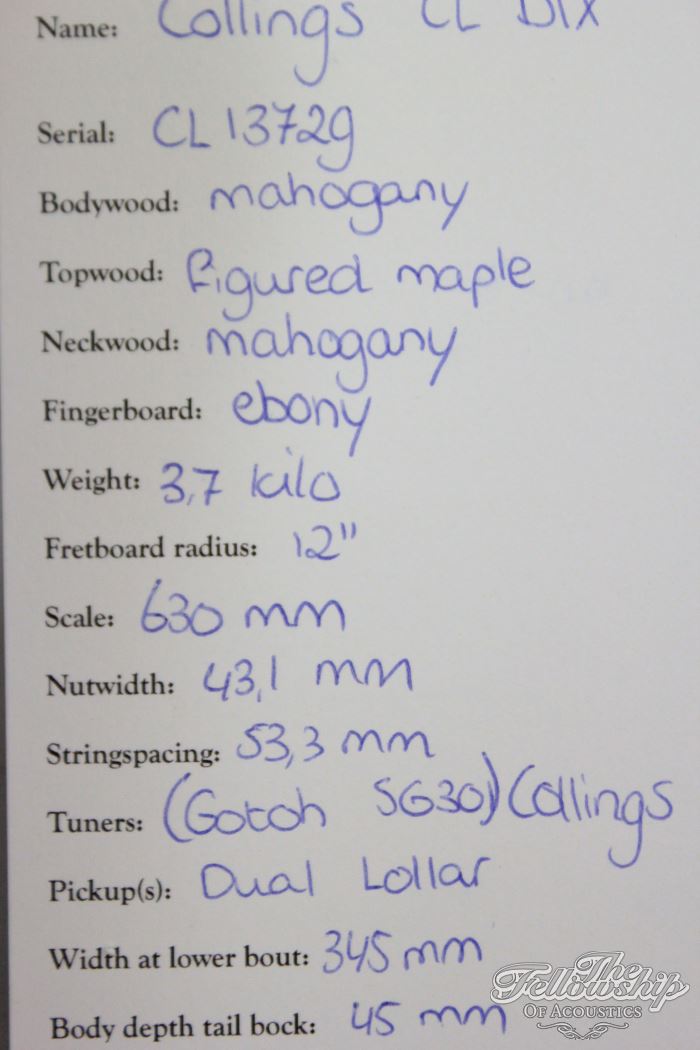 Name: Collings CL Dlx
Serial: CL13729
Bodywood: mahogany
Topwood: figured maple
Neckwood: mahogany
Fingerboard: ebony
Weight: 3,7 kilo
Fretboard radius: 12"
Scale: 630 mm
Nutwidth: 43,1 mm
Stringspacing: 53,3 mm
Tuners: (Gotoh SG30) Collings
Pickup(s): Dual Lollar
Width at lower bout: 345 mm
Body depth tail bock: 45 mm
The
Fellowship
Of Acoustics